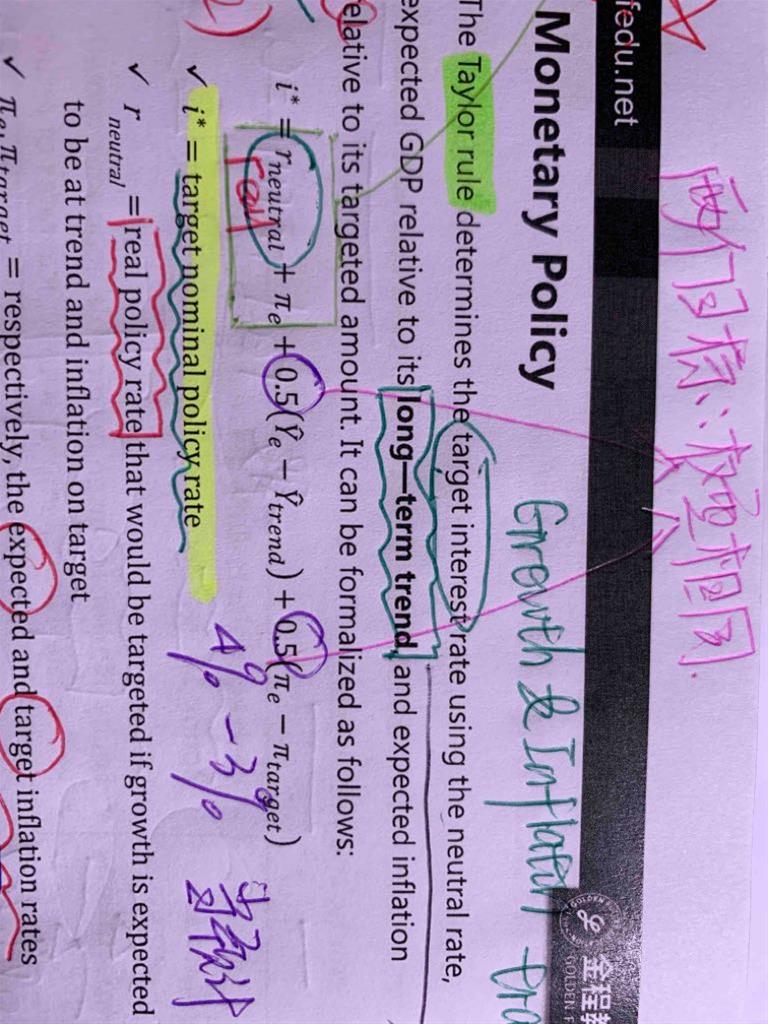 两个目标：权重相同.
fedu.net
金程教
GOLDEN F
Monetary Policy
Growth & Inflation tra
The Taylor rule determines the target interest rate using the neutral rate,
expected GDP relative to its long—term trend, and expected inflation
elative to its targeted amount. It can be formalized as follows:
i* = r neutral + πe + 0.5(Ŷe − Ŷtrend) + 0.5(πe − πtarget)
real
4% - 3%
2)
✓ i* = target nominal policy rate
✓ r neutral = real policy rate that would be targeted if growth is expected
to be at trend and inflation on target
✓ πe, πtarget = respectively, the expected and target inflation rates